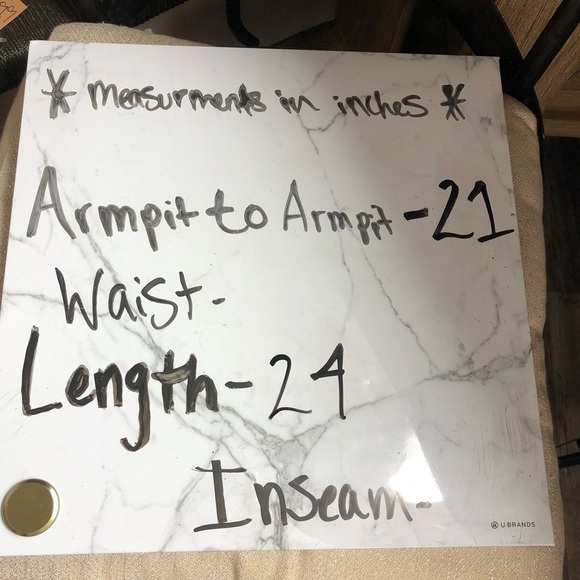 * measurments in inches *
Armpit to Armpit - 21
Waist -
Length - 24
Inseam -
U BRANDS